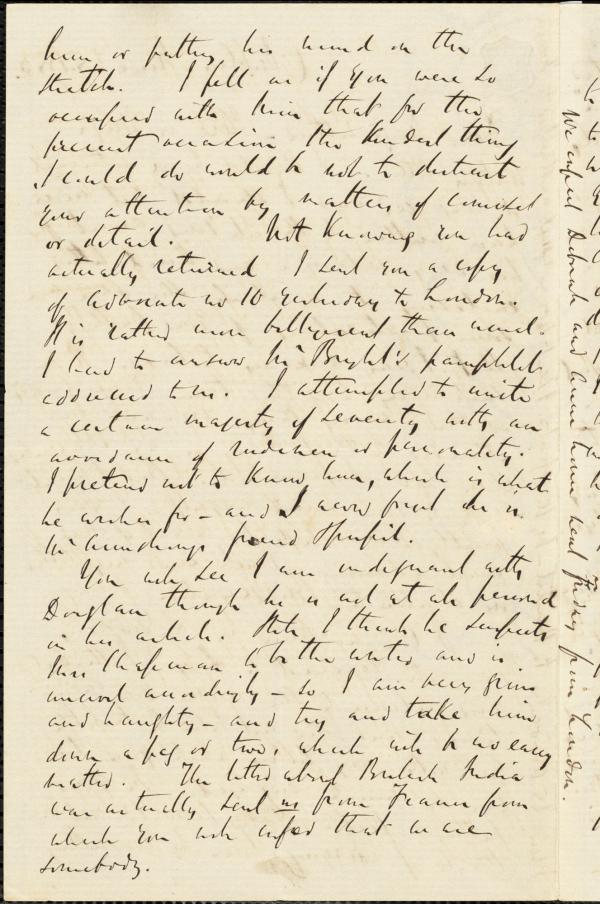 him, or putting his mind on the
stretch. I felt as if you were so
occupied with him that for the
present occasion the kindest thing
I could do would be not to distract
your attention by matters of
or detail. Not knowing you had
actually returned I sent you a copy
of Advocate no 10 yesterday to London.
It is rather more belligerent than usual.
I had to answer Mr Bright's pamphlet
addressed to me. I attempted to unite
a certain majesty of severity with an
avoidance of rudeness or personality.
I pretend not to know him, which is what
he wishes for – and I never
Mr Armstrong's friend
You will see I am indignant with
Douglass though he is not at all personal
in his article. Still I think he suspects
Mrs Chapman to be the writer and is
uncivil accordingly – so I am very grim
and haughty – and try and take him
down a peg or two, which will be no easy
matter. The letter about British India
was actually sent us from France from
which you will infer that we are
somebody.
We expect Deborah and Anne home next Friday from London.